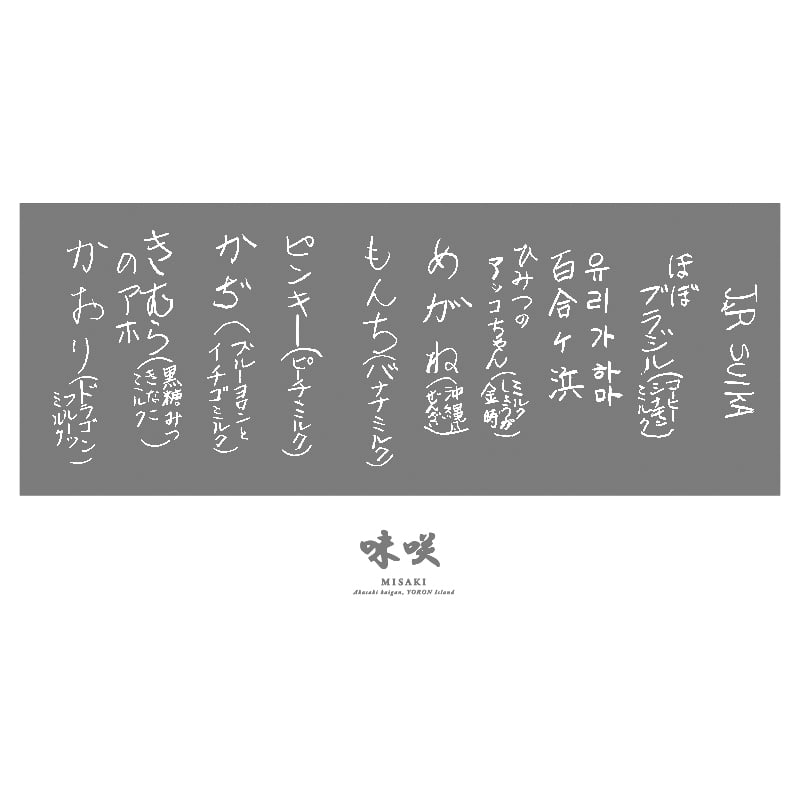 JR SUIKA
ほぼ
ブラジル(コーヒー
シナモン
ミルク)
유리가 하마
百合ヶ浜
ひみつの
アッコちゃん(ミルク
しょうが
金時)
めがね(沖縄風
ぜんざい)
もんち(バナナミルク)
ピンキー(ピーチミルク)
かぢ(ブルーヨロンと
イチゴミルク)
きむら(黒糖みつ
きなこ
ミルク)
のアホ
かおり(ドラゴン
フルーツ
ミルク)
味咲
MISAKI
Akasaki kaigan, YORON Island